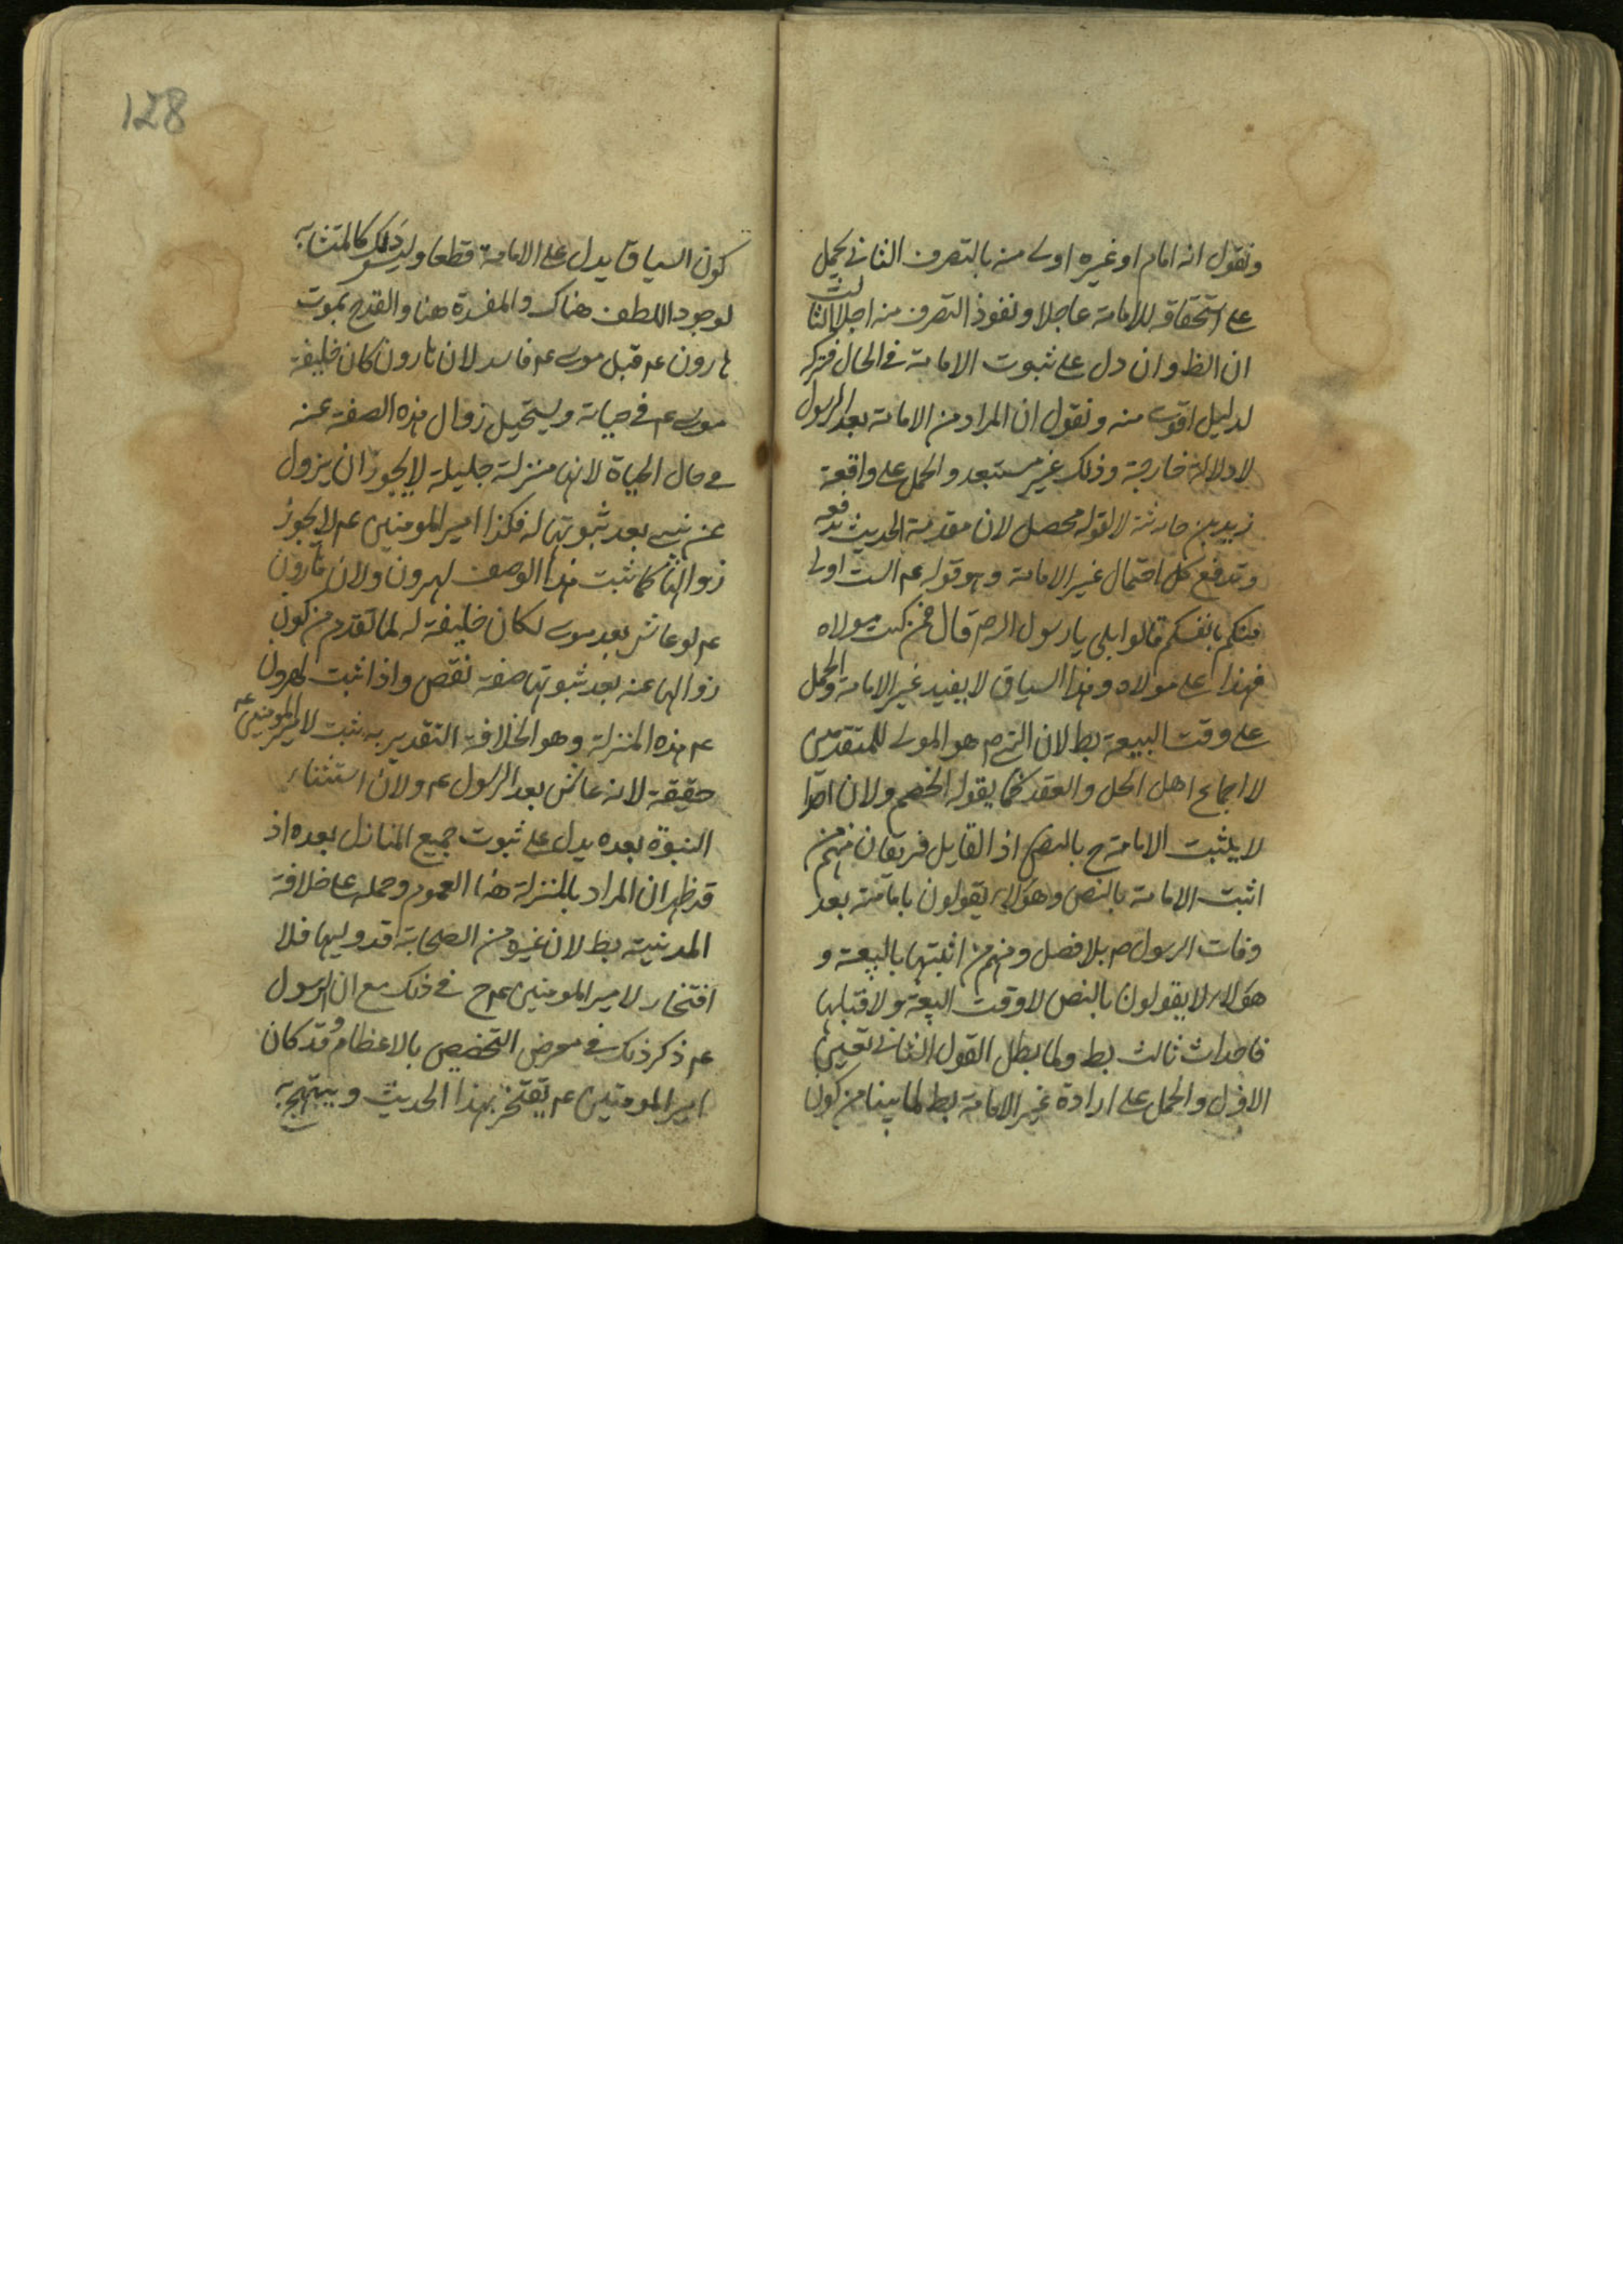 ونقول انه امام او غيره اولى منه بالتصرف الثاني يحمل
على استحقاقه للامامة عاجلا ونفوذ التصرف منه اجلا الثالث
ان الظ وان دل على ثبوت الامامة في الحال فتركه
لدليل اقوى منه ونقول ان المراد من الامامة بعد الرسول
لا دلالة خارجة وذلك غير مستبعد والحمل على واقعة
زيد بن حارثة لا لقوله محصل لان مقدمة الحديث تدفعه
وتدفع كل احتمال غير الامامة وهو قوله عم الست اولى
منكم بانفسكم قالوا بلى يا رسول الله ص قال فمن كنت مولاه
فهذا على مولاه وهذا السياق لا يفيد غير الامامة والحمل
على وقت البيعة بط لان النبي ص هو المولى للمتقدمين
لا اجماع اهل الحل والعقد كما يقوله الخصم ولان احدا
لا يثبت الامامة ح بالنص اذ القايل فريقان منهم من
اثبت الامامة بالنص وهؤلاء يقولون بامامته بعد
وفات الرسول ص بلا فصل ومنهم من اثبتها بالبيعة و
هؤلاء لا يقولون بالنص لا وقت البيعة ولا قبلها
فاحداث ثالث بط ولما بطل القول الثاني تعين
الاول والحمل على ارادة غير الامامة بط لما بينا من كون
128
كون السياق يدل على الامامة قطعا وليس ذلك كالمتشابه
لوجود اللطف هناك والمفسدة هنا والقدح بموت
هارون عم قبل موسى عم فاسد لان هارون كان خليفة
موسى عم في حياته ويستحيل زوال هذه الصفة عنه
في حال الحياة لانها منزلة جليلة لا يجوز ان يزول
عن نبي بعد ثبوتها له فكذا امير المومنين عم لا يجوز
زوالها كما ثبت هذا الوصف لهرون ولان هارون
عم لو عاش بعد موسى لكان خليفة له لما تقدم من كون
زوالها عنه بعد ثبوتها صفة نقص واذا ثبت لهرون
عم هذه المنزلة وهو الخلافة التقديرية ثبت لامير المومنين عم
حقيقة لانه عاش بعد الرسول عم ولان استثناء
النبوة بعده يدل على ثبوت جميع المنازل بعده اذ
قد ظهر ان المراد بالمنزلة هنا العموم وحمله على خلافة
المدينة بط لان غيره من الصحابة قد وليها فلا
افتخار لامير المومنين عم ح في ذلك مع ان الرسول
عم ذكر ذلك في معرض التخصيص بالاعظام وقد كان
امير المومنين عم يفتخر بهذا الحديث ويبتهج به